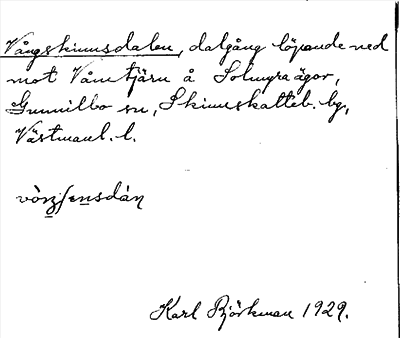 Vångskinnsdalen, dalgång löpande ned
mot Våmtjärn å Solmyra ägor,
Gunnilbo sn, Skinnskatteb. hg,
Västmanl. l.
vòŋʃensdáɳ
Karl Björkman 1929.